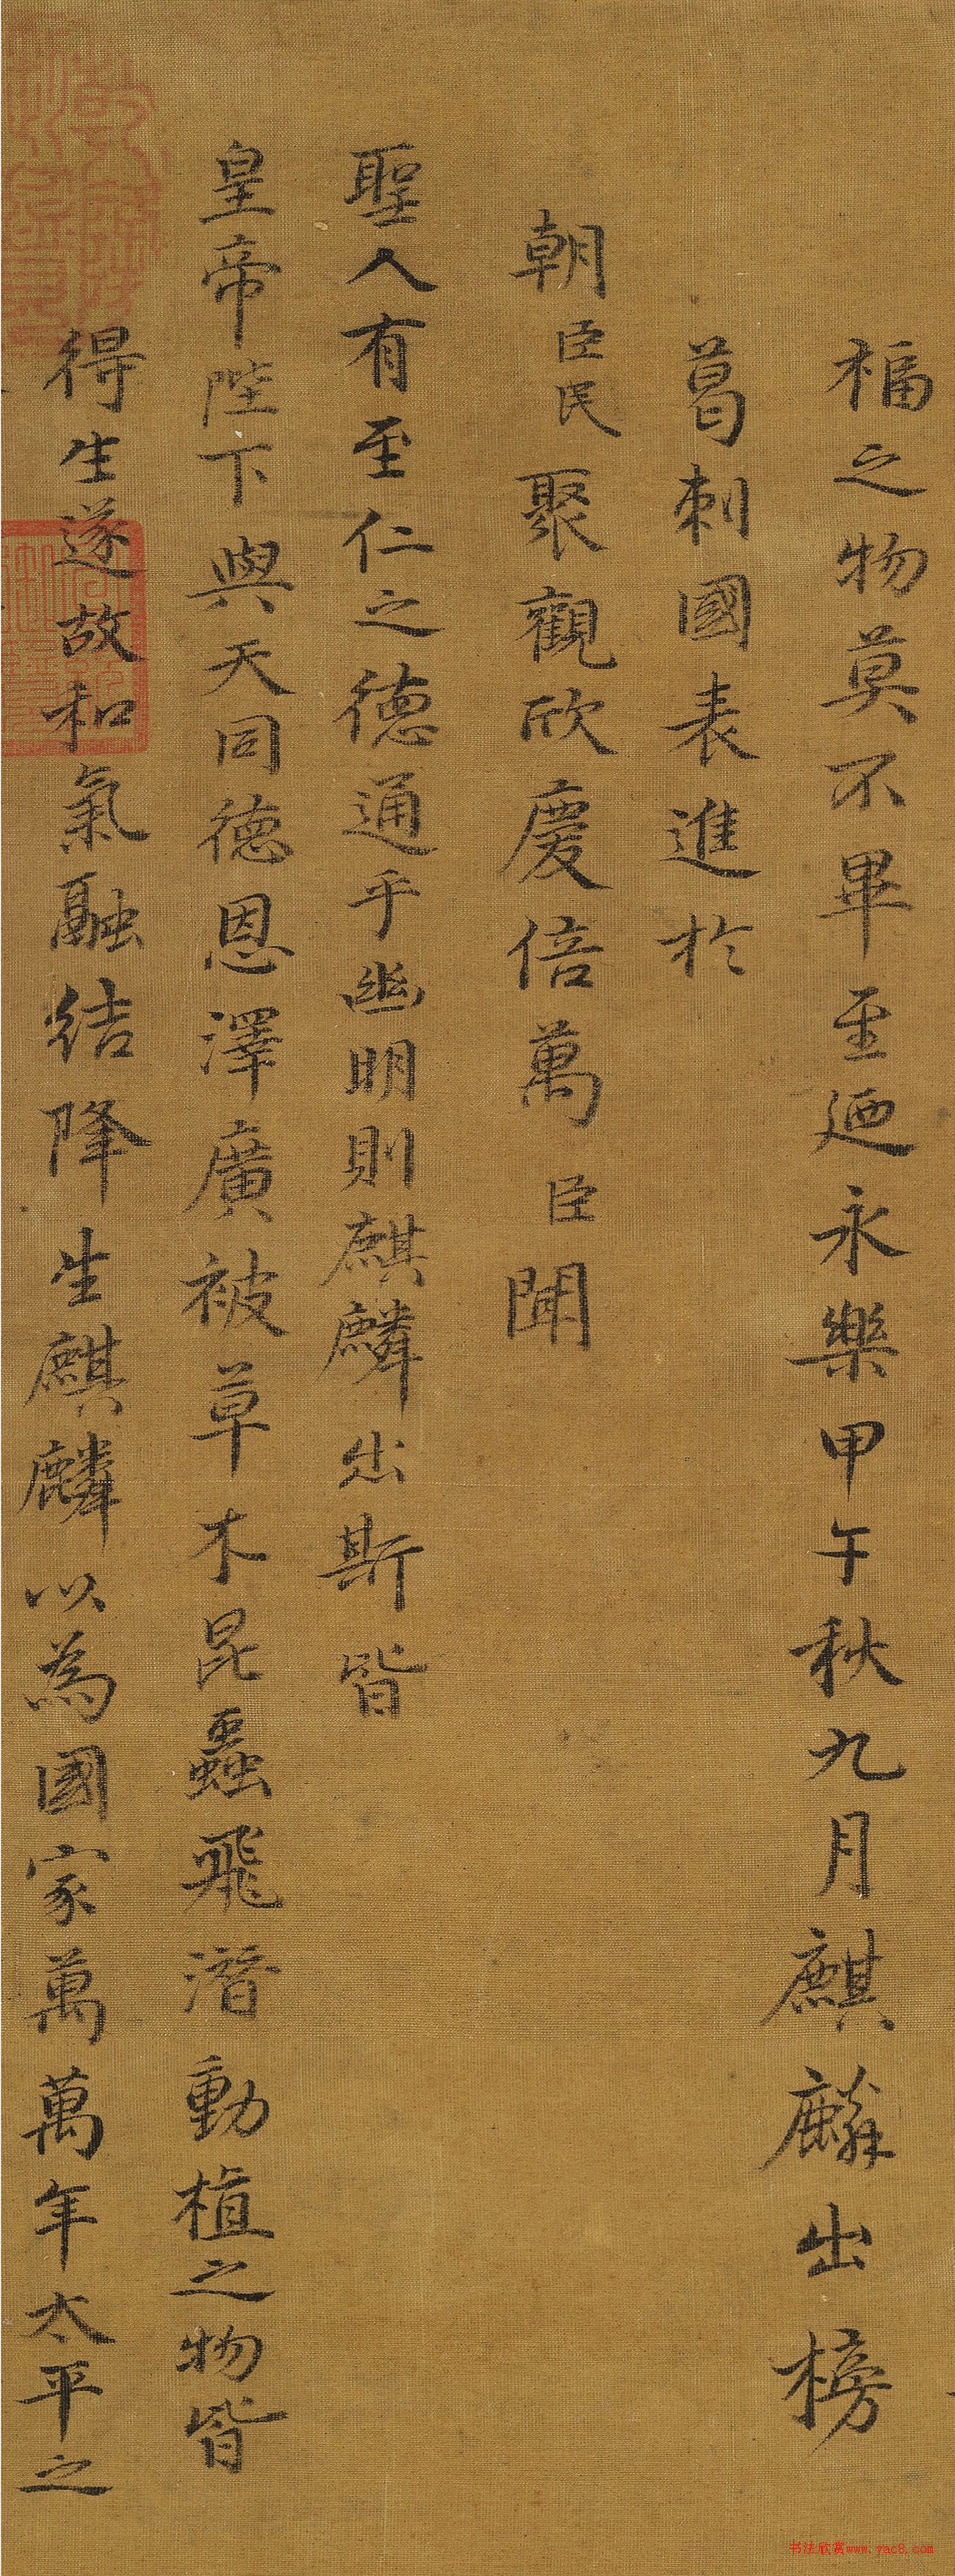 福之物莫不畢至迺永樂甲午秋九月麒麟出榜
葛剌國表進於
朝臣民聚觀欣慶倍萬臣聞
聖人有至仁之德通乎幽明則麒麟出斯皆
皇帝陛下與天同德恩澤廣被草木昆蟲飛潛動植之物皆
得生遂故和氣融結降生麒麟以為國家萬萬年太平之
书法欣赏www.yac8.com